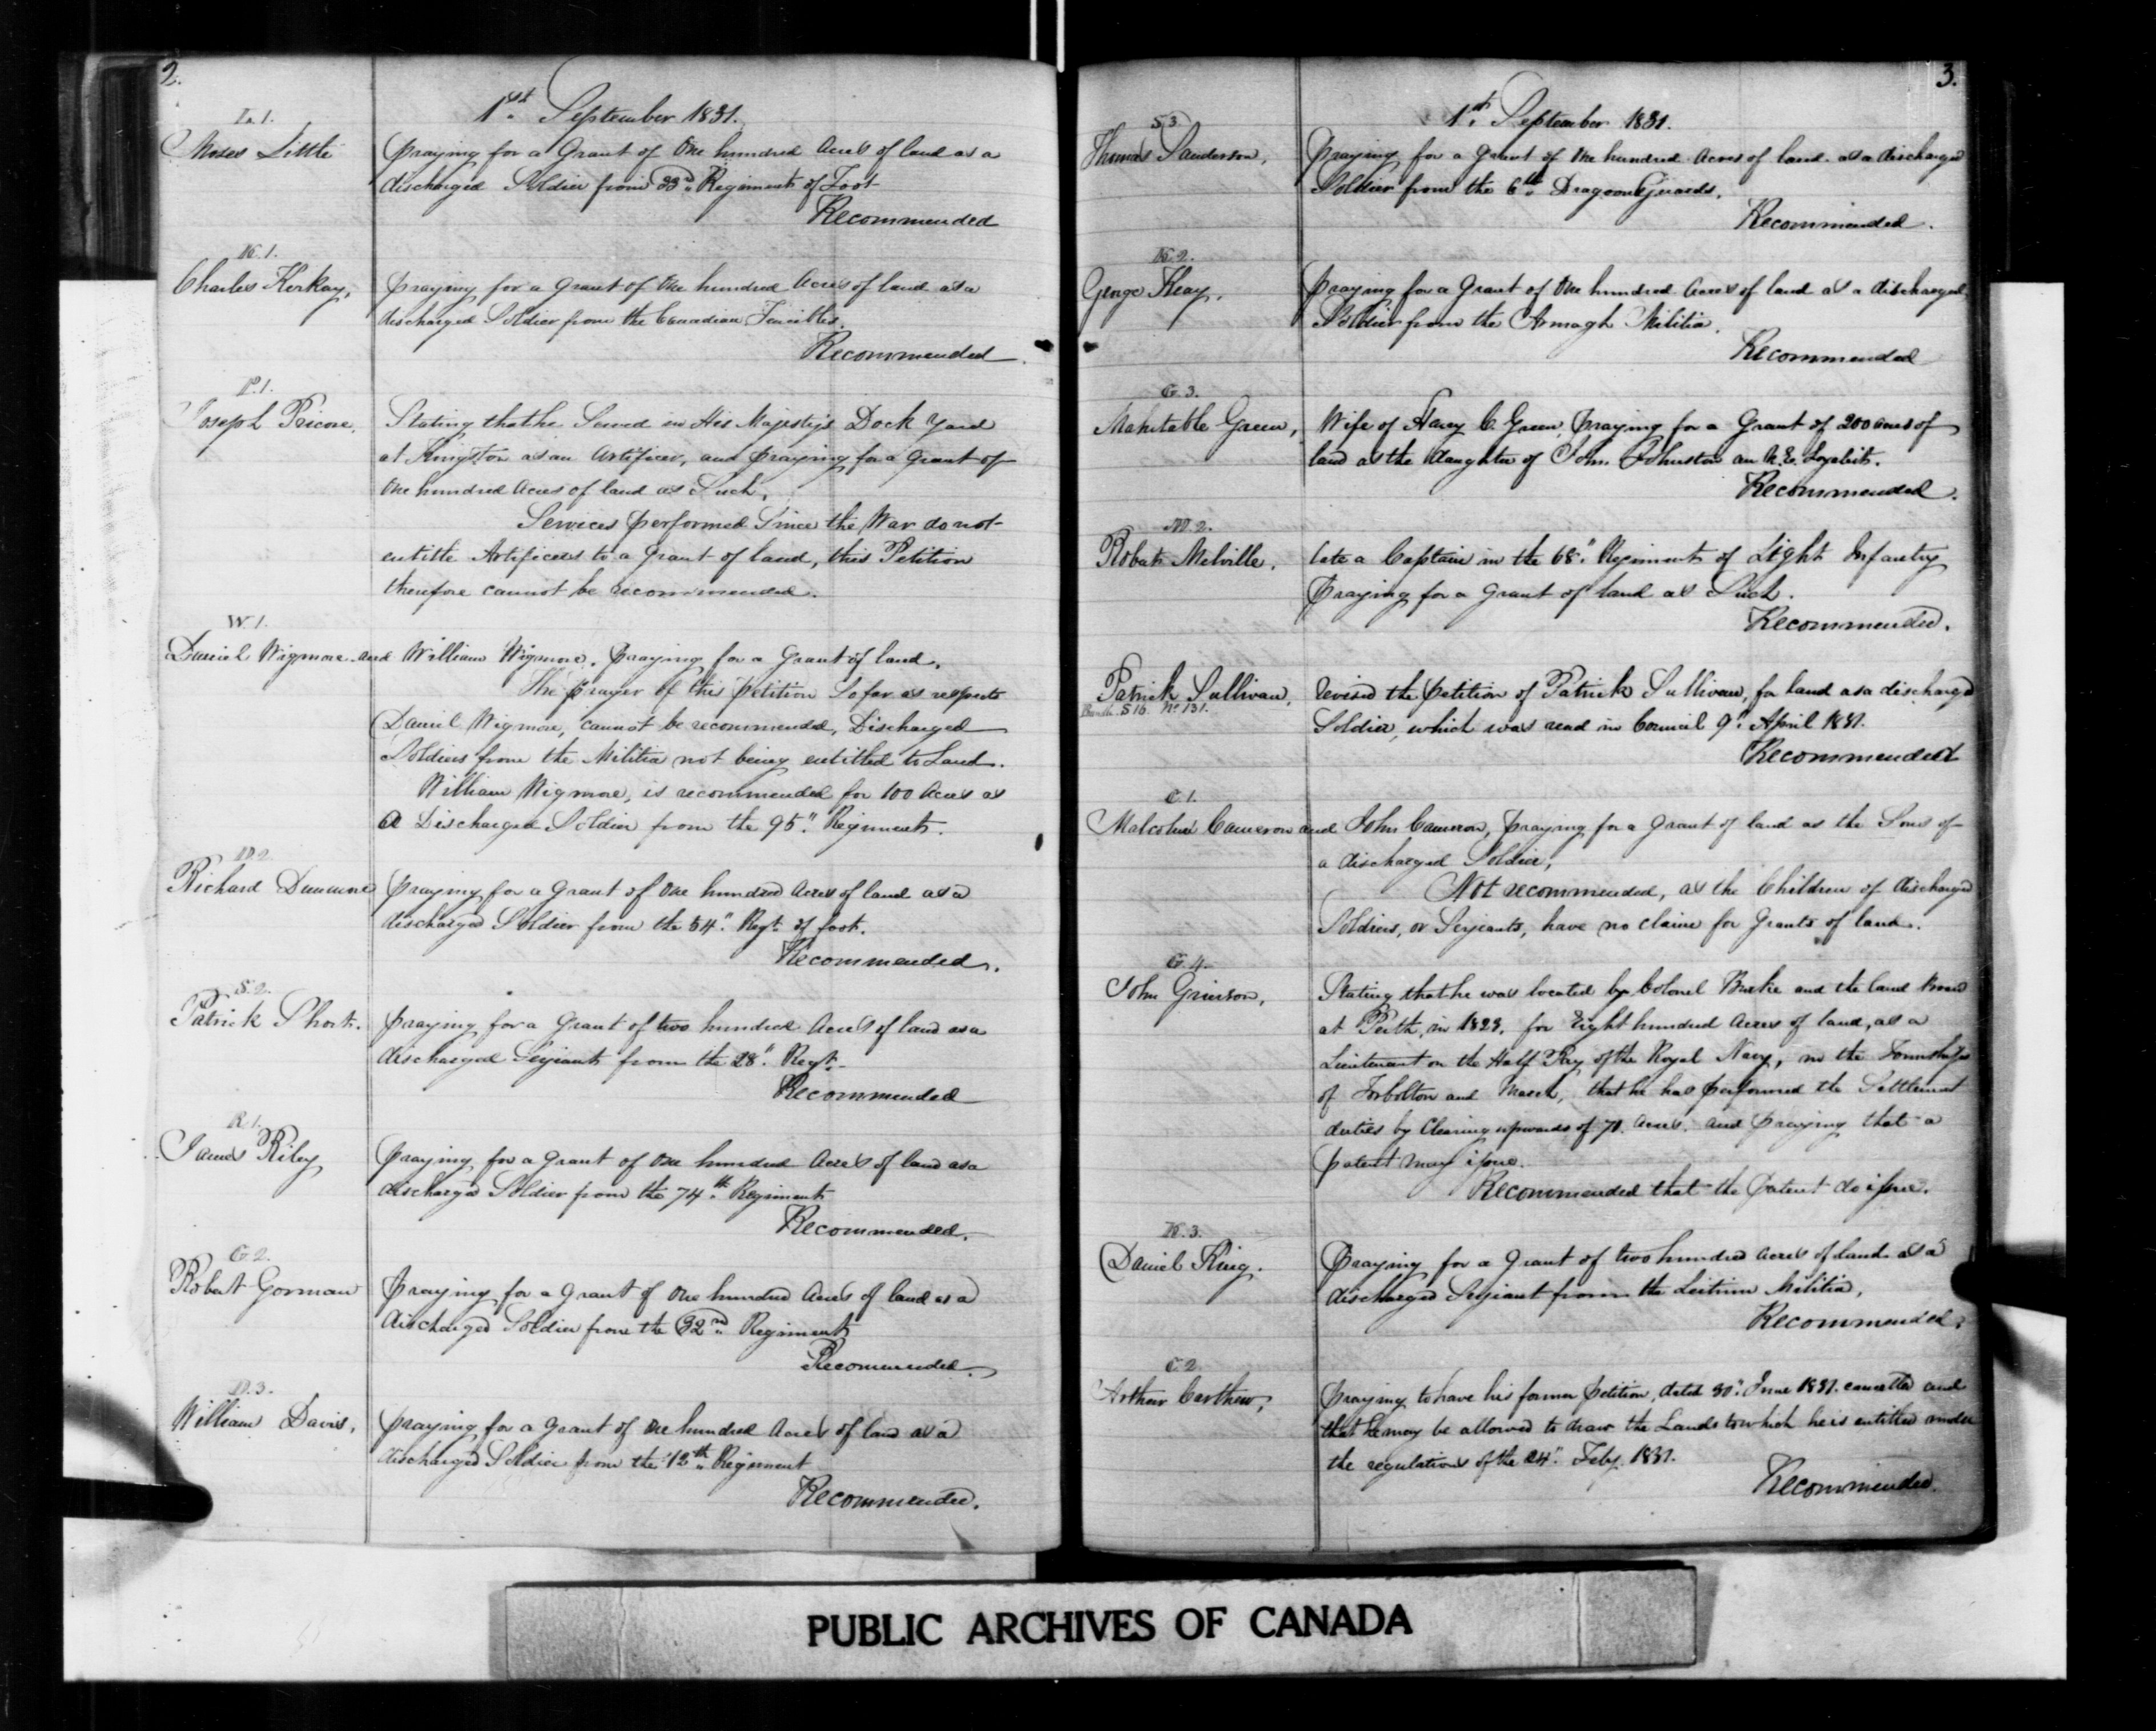 2.
1st. September 1831.
L.1.
Moses Little
praying for a Grant of One hundred Acres of land as a
discharged Soldier from 33rd. Regiment of Foot
Recommended
K.1.
Charles Kerkay,
praying for a Grant of One hundred Acres of land as a
discharged Soldier from the Canadian Fencibles.
Recommended
P.1.
Joseph
Stating that he Served in His Majesty's Dock Yard
at Kingston as an Artificer, and praying for a Grant of
One hundred Acres of land as Such.
Services performed Since the War do not
entitle Artificers to a Grant of land, this Petition
therefore cannot be recommended.
W.1.
Daniel Wigmore and William Wigmore. praying for a Grant of land.
The prayer of this petition So far as respects
Daniel Wigmore, cannot be recommended, Discharged
Soldiers from the Militia not being entitled to Land.
William Wigmore, is recommended for 100 Acres as
a Discharged Soldier from the 95". Regiment.
D.2.
Richard
praying for a Grant of One hundred Acres of land as a
discharged Soldier from the 54". Regt. of foot.
Recommended.
S.2.
Patrick Short.
praying for a Grant of two hundred Acres of land as a
discharged Serjeant from the 28". Regt.
Recommended
R.1.
James Riley
praying for a Grant of One hundred Acres of land as a
discharged Soldier from the 74th. Regiment
Recommended.
G.2.
Robert Gorman
praying for a Grant of One hundred Acres of land as a
discharged Soldier from the 32nd. Regiment
Recommended.
D.3.
William Davis,
praying for a Grant of One hundred Acres of land as a
discharged Soldier from the 12th. Regiment
Recommended.
3.
1st. September 1831.
S3
Thomas Sanderson,
Praying for a grant of One hundred Acres of land as a discharged
Soldier from the 6th. Dragoon Guards.
Recommended.
K.2.
George Keay,
praying for a Grant of One hundred Acres of land as a discharged
Soldier from the Armagh Militia.
Recommended
G.3.
Mahitable Green,
Wife of Harry C. Green, praying for a Grant of 200 acres of
land as the daughter of John Johnston an U.E. Loyalist.
Recommended.
M.2.
Robert Melville,
late a Captain in the 68". Regiment of Light Infantry
praying for a Grant of land as Such.
Recommended.
Patrick Sullivan,
Bundle S16. No 131.
Revised the petition of Patrick Sullivan, for land as a discharged
Soldier, which was read in Council 9". April 1831.
Recommended
C.1.
Malcolm Cameron and John Cameron, praying for a Grant of land as the Sons of
a discharged Soldier,
Not recommended, as the Children of discharged
Soldiers, or Serjeants, have no claim for Grants of land.
G.4.
John Grierson,
Stating that he was located by Colonel Burke and the land Board
at Perth, in 1823, for Eight hundred Acres of land, as a
Lieutenant on the Half Pay of the Royal Navy, in the Townships
of Torbolton and March, that he has performed the Settlement
duties by Clearing upwards of 70. Acres, and praying that a
patent may issue.
Recommended that the Patent do issue.
K.3.
Daniel King.
Praying for a grant of two hundred Acres of land as a
discharged Serjeant from the Leitrim Militia,
Recommended.
C.2.
Arthur Carthew,
praying to have his former petition, dated 30". June 1831. cancelled and
that he may be allowed to draw the Lands to which he is entitled under
the regulations of the 24". Feby. 1831.
Recommended.
PUBLIC ARCHIVES OF CANADA